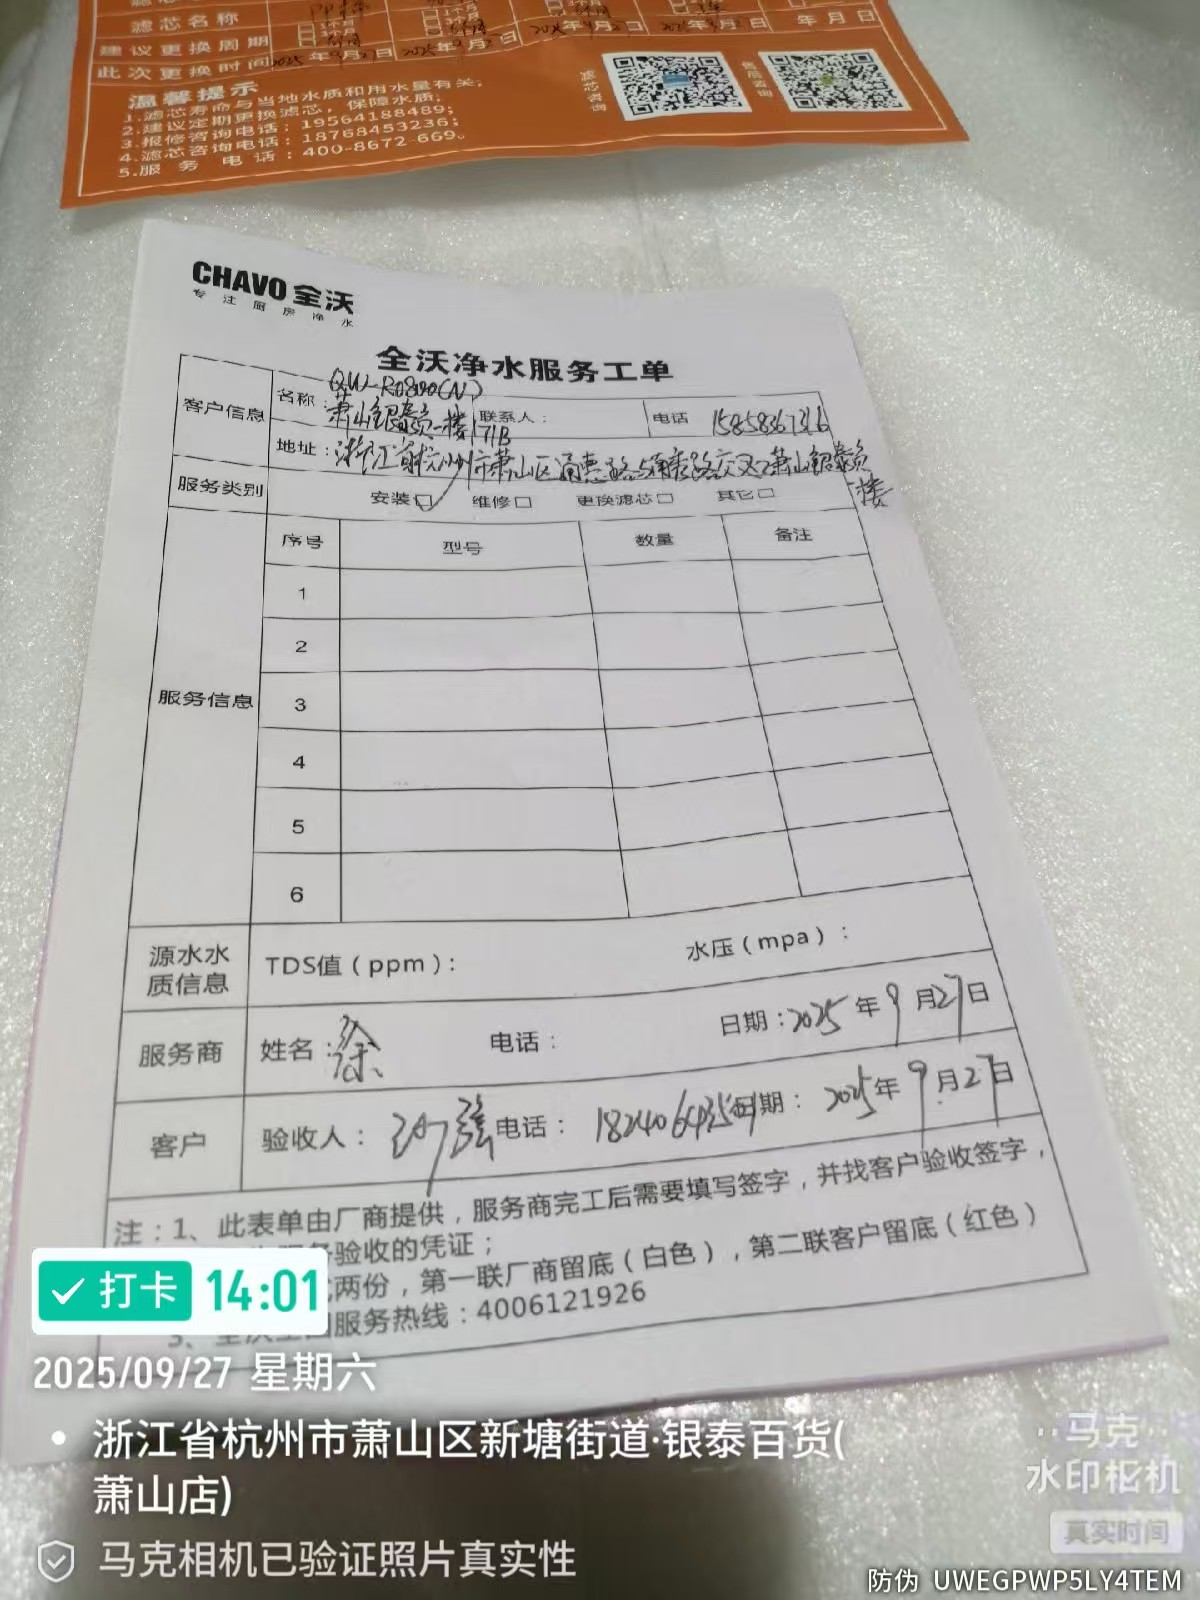 滤芯名称 PP棉
建议更换周期
此次更换时间 2025年9月27日 2025年9月27日 2025年9月27日 2025年9月27日 年 月 日
温馨提示
1.滤芯寿命与当地水质和用水量有关;
2.建议定期更换滤芯，保障水质;
3.报修咨询电话：19564188489;
4.滤芯咨询电话：18768453236;
5.服务电话：400-8672-669。
滤芯咨询
售后咨询
CHAVO 全沃
专注厨房净水
全沃净水服务工单
客户信息
名称：萧山银泰负一楼171B
联系人：
电话 15858367316
地址：浙江省杭州市萧山区通惠路与萧山银泰负一楼
服务类别 安装☑ 维修□ 更换滤芯□ 其它□
服务信息
序号 型号 数量 备注
1
2
3
4
5
6
源水水质信息
TDS值（ppm）： 水压（mpa）：
服务商 姓名：徐 电话： 日期：2025年9月27日
客户 验收人： 电话： 日期：2025年9月27日
注：1、此表单由厂商提供，服务商完工后需要填写签字，并找客户验收签字，
验收的凭证；
两份，第一联厂商留底（白色），第二联客户留底（红色）
3、服务热线：4006121926
打卡 14:01
2025/09/27 星期六
浙江省杭州市萧山区新塘街道·银泰百货(
萧山店)
马克相机已验证照片真实性
马克
水印相机
真实时间
防伪 UWEGPWP5LY4TEM